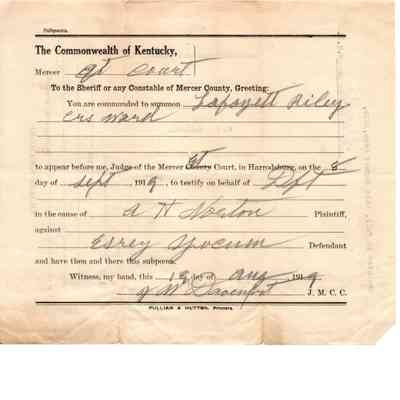 Subpoena.
The Commonwealth of Kentucky,
Mercer Qt Court
To the Sheriff or any Constable of Mercer County, Greeting:
You are commanded to summon Lafayett Riley
Ward
to appear before me, Judge of the Mercer Qt Court, in Harrodsburg, on the 8
day of Sept, 1919, to testify on behalf of Deft
in the cause of A H Norton Plaintiff,
against
Esrey Defendant
and have then and there this subpoena.
Witness, my hand, this 19 day of Aug 1919
J. M. C. C.
PULLIAM & HUTTON, Printers.